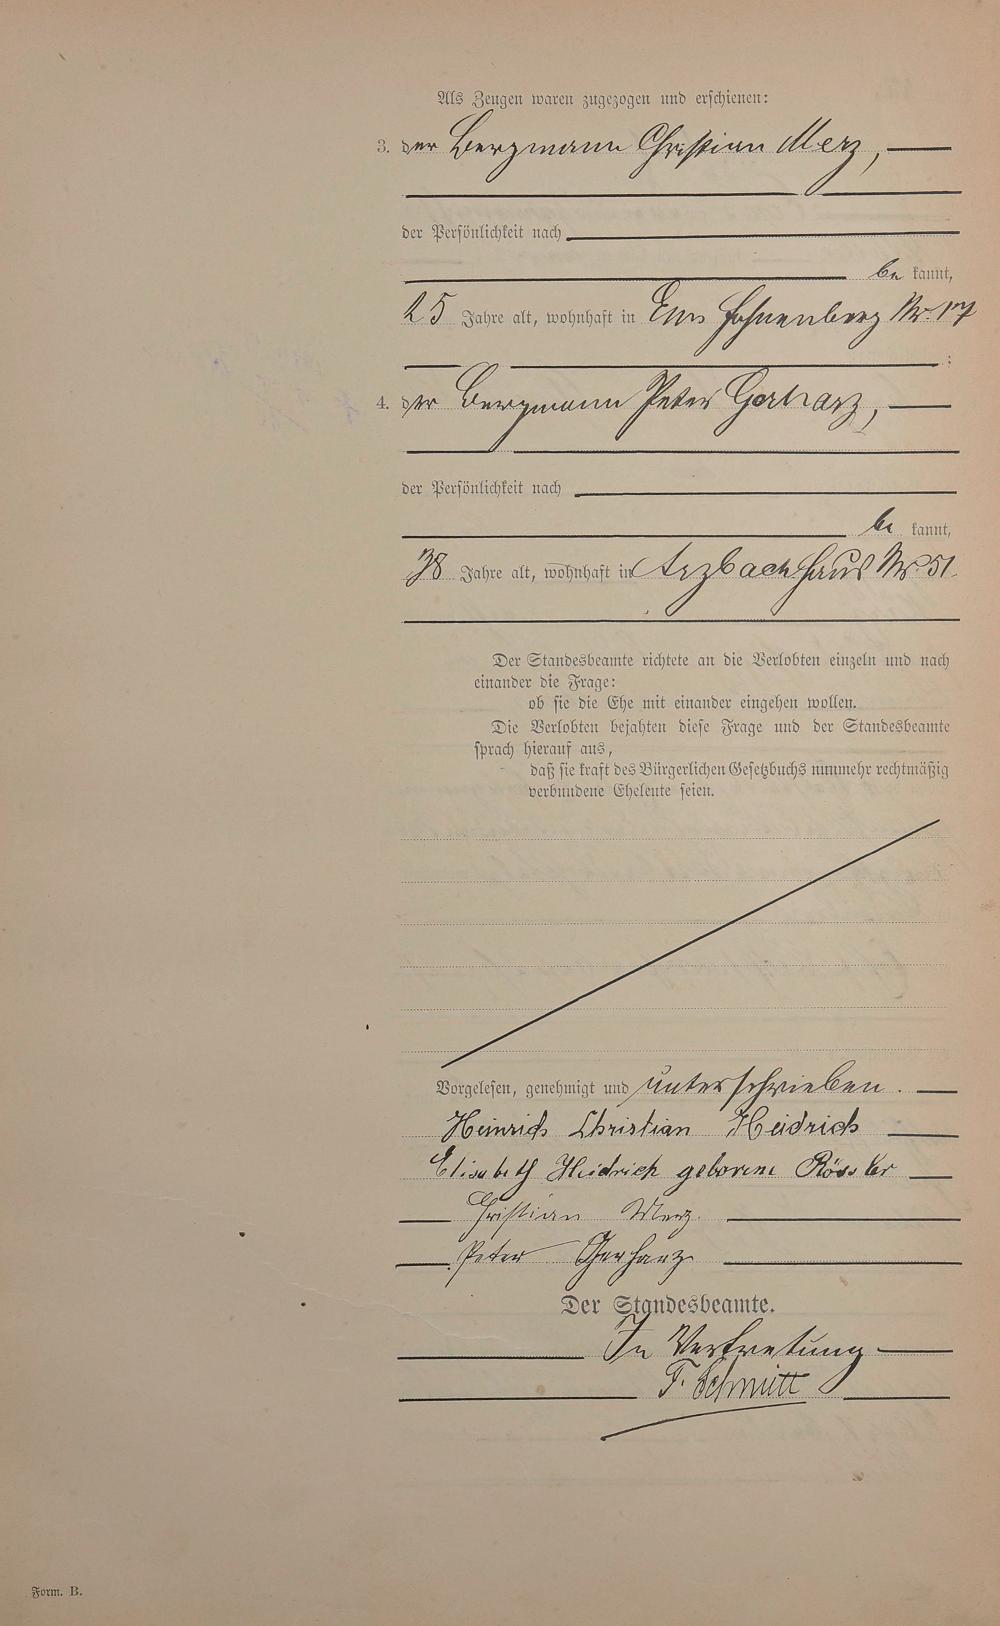 Als Zeugen waren zugezogen und erschienen:
3. der Bergmann Christian Merz,
der Persönlichkeit nach
be kannt,
25 Jahre alt, wohnhaft in Ems Nr. 17
;
4. der Bergmann Peter Gerharz,
der Persönlichkeit nach
be kannt,
38 Jahre alt, wohnhaft in Arzbach Haus Nr. 51
Der Standesbeamte richtete an die Verlobten einzeln und nach
einander die Frage:
ob sie die Ehe mit einander eingehen wollen.
Die Verlobten bejahten diese Frage und der Standesbeamte
sprach hierauf aus,
daß sie kraft des Bürgerlichen Gesetzbuchs nunmehr rechtmäßig
verbundene Eheleute seien.
Vorgelesen, genehmigt und unterschrieben.
Heinrich Christian Heidrich
Elisabeth Heidrich geborene Rössler
Christian Merz.
Peter Gerharz
Der Standesbeamte.
In Vertretung
F. Schmitt
Form. B.